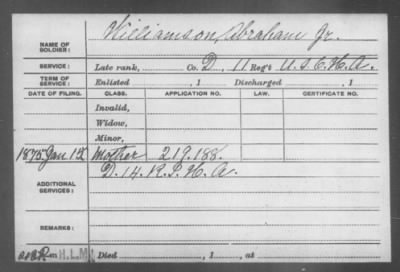 Williamson, Abraham Jr.
NAME OF SOLDIER:
SERVICE: Late rank, Co. D, 11 Reg't U.S.C.H.A.
TERM OF SERVICE: Enlisted , 1 Discharged , 1
DATE OF FILING. CLASS. APPLICATION NO. LAW. CERTIFICATE NO.
Invalid,
Widow,
Minor,
1875 Jan 12 Mother 219.188.
D. 14. R.I. H.A.
ADDITIONAL SERVICES:
REMARKS:
H.L.M. Died , 1 , at